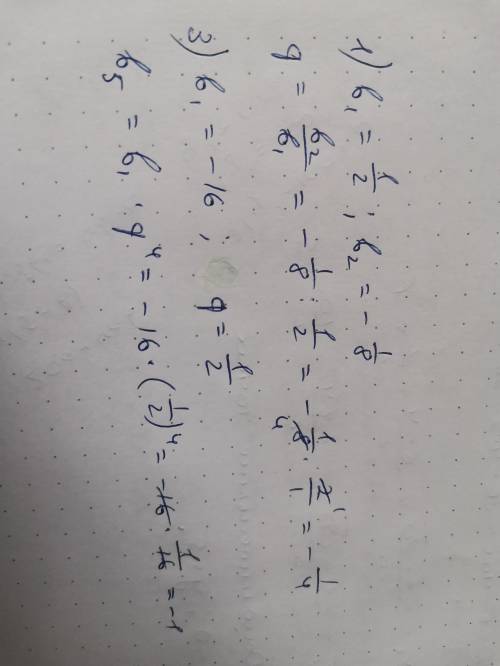 1) b₁ = 1/2; b₂ = -1/8
q = b₂/b₁ = -1/8 : 1/2 = -1/8 · 2/1 = -1/4
3) b₁ = -16; q = 1/2
b₅ = b₁ · q⁴ = -16 · (1/2)⁴ = -16 · 1/16 = -1